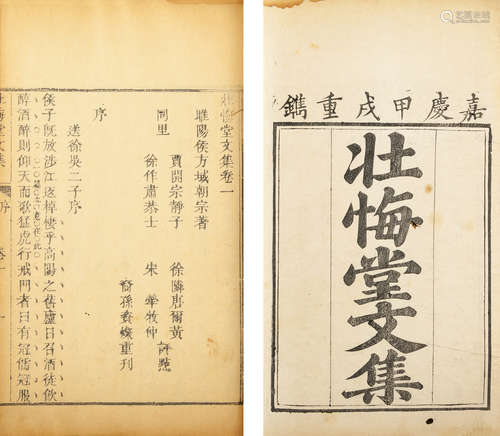 嘉慶甲戌重鐫
壯悔堂文集
壯悔堂文集卷一
睢陽侯方域朝宗著
賈開宗靜子
徐隣唐爾黃
同里
評點
徐作肅恭士
宋犖牧仲
裔孫資燦重刊
序
送徐吳二子序
侯子既放涉江返棹棲乎高陽之舊廬日召酒徒飲
醉酒醉則仰天而歌猛虎行戒門者曰有冠儒冠服
壯悔堂文集
序
卷一